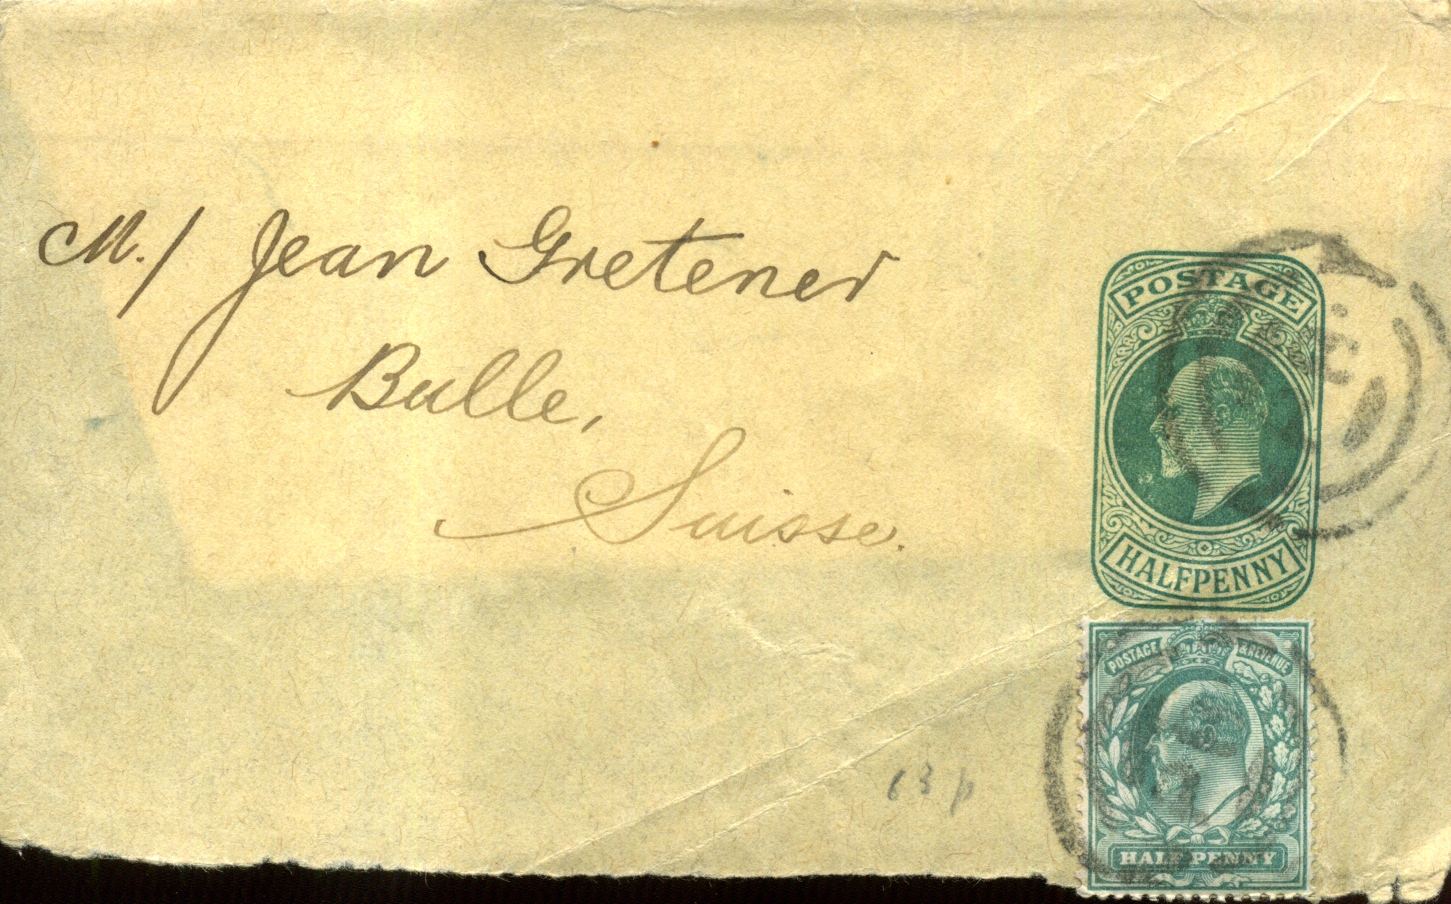 M./ Jean Gretener
Bulle,
Suisse.
POSTAGE
HALFPENNY
POSTAGE & REVENUE
HALF PENNY